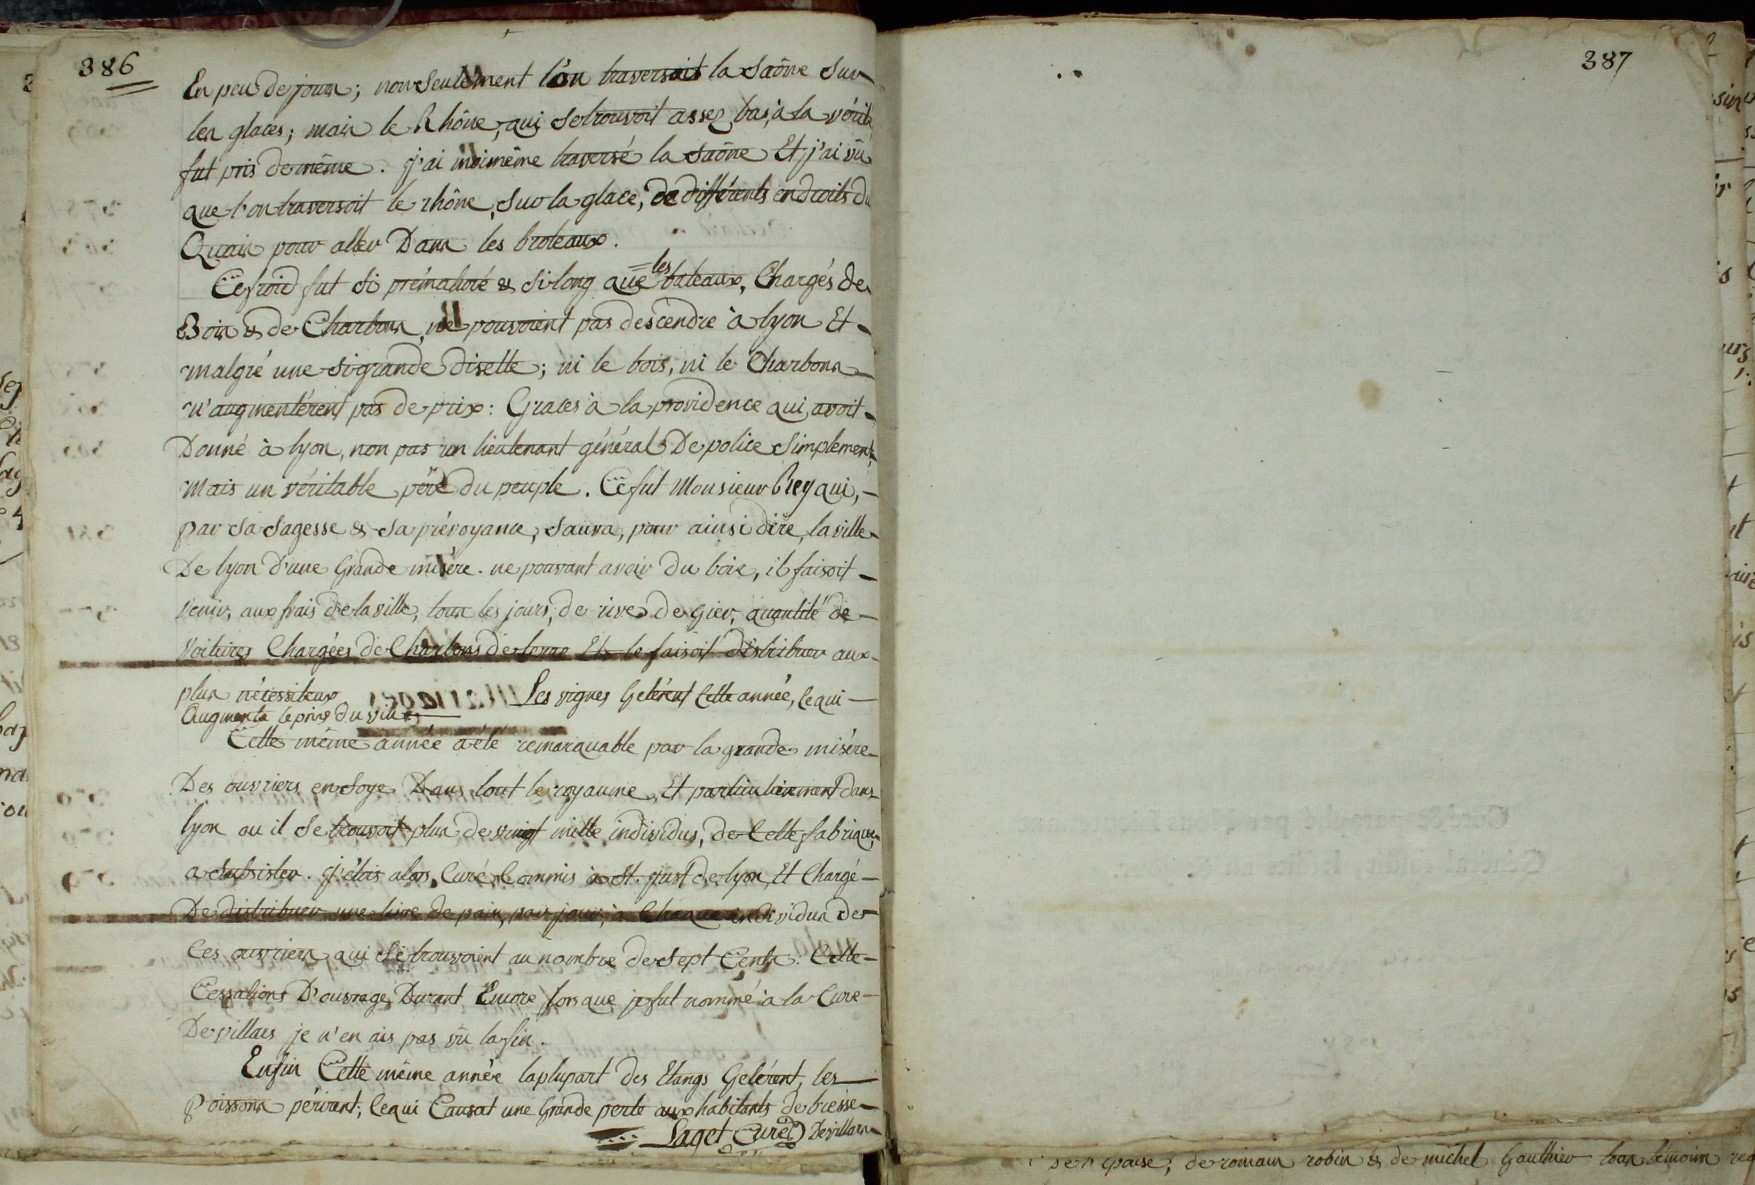 386
En peu de jours; non seulement l'on traversoit la Saône sur
les glaces; mais le Rhône, qui se trouvoit assez bas, à la vérité
fut pris de même. j'ai moi même traversé la Saône Et j'ai vû
que l'on traversoit le rhône, sur la glace, de différents endroits du
Quais pour aller Dans les broteaux.
Ce froid fut si prématuré & si long que les bateaux, Chargés de
Bois & de Charbons, ne pouvoient pas descendre à lyon Et
malgré une si grande disette; ni le bois, ni le Charbons
n'augmentérent pas de prix: Graces à la providence qui avoit
Donné à lyon, non pas un lieutenant général De police simplement,
mais un véritable pére du peuple. Ce fut Monsieur Rey qui,
par sa sagesse & sa prévoyance, sauva, pour ainsi dire, la ville
De lyon d'une Grande misére. ne pouvant avoir du bois, il faisoit
venir, aux frais de la ville, tous les jours, de rive de gier, quantité de
Voitures Chargées de Charbons de terre Et le faisoit distribuer aux
plus nécessiteux Les vignes Gelérent Cette année, Ce qui
Augmenta le prix du vin
Cette même année a été remarquable par la grande misére
Des ouvriers en Soye Dans tout le royaume, Et particuliérement dans
lyon ou il se trouvoit plus de vingt mille individus, de Cette fabrique,
a subsister. j'étois alors Curé Commis a St. just de lyon, Et Chargé
De distribuer une livre de pain, par jour, à Chaque individus de
Ces ouvriers qui se trouvoient au nombre de Sept Cents. Cette
Cessations D'ouvrage Durant Encore lorsque je fut nommé à la Cure
De villars je n'en ais pas vû la fin.
Enfin Cette même année la plupart des Etangs Gelérent, les
Poissons périrent; Ce qui Causat une Grande perte aux habitants de bresse
Laget Curé De villars
387
de romain robin & de michel Gauthier tous témoins